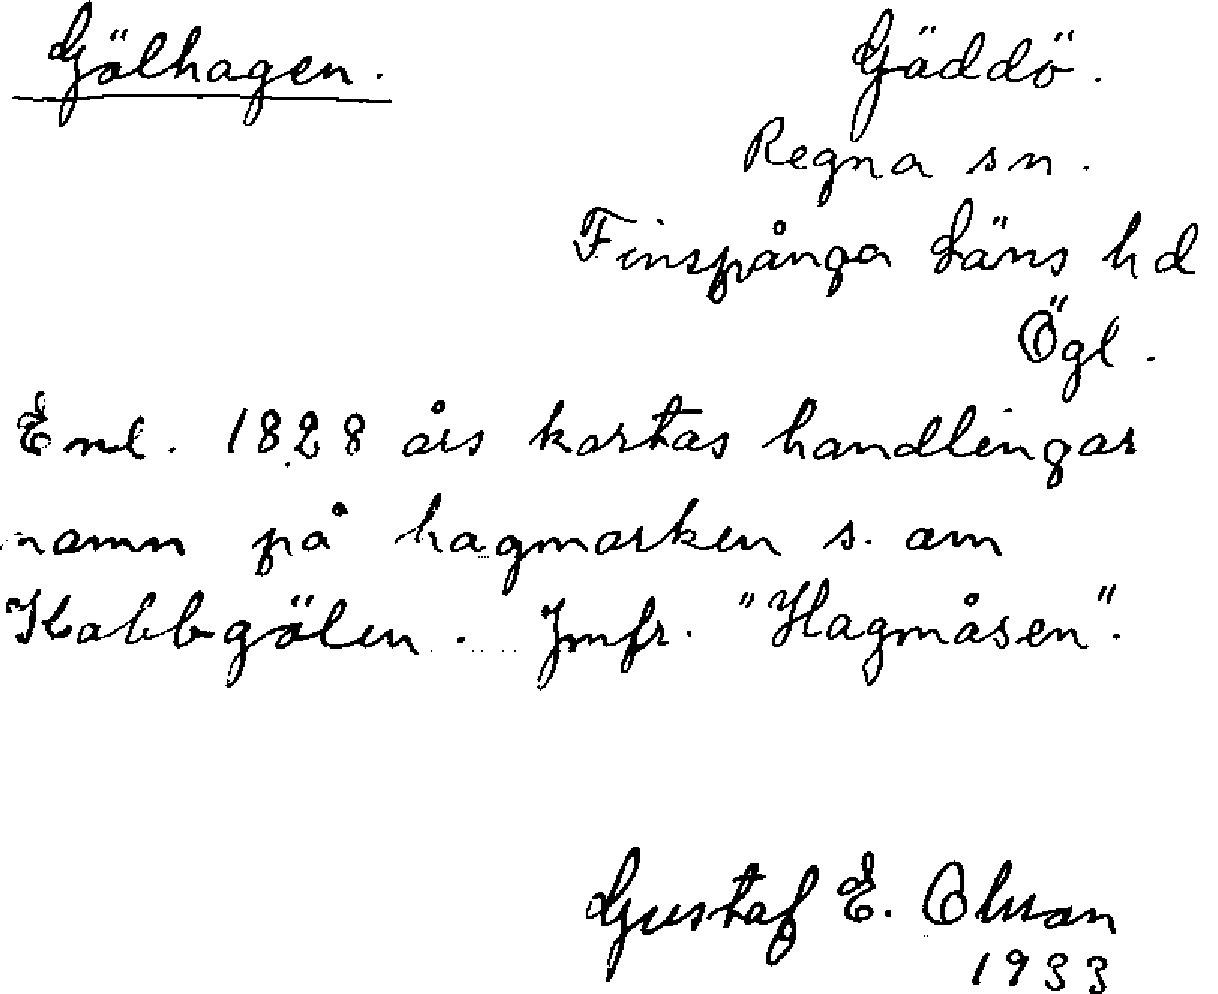 Gölhagen. Gäddö.
Regna sn.
Finspånga Läns hd
Ögl.
Enl. 1828 års kartas handlingar
namn på hagmarken s. om
Kabbgölen. Jmfr. "Hagmåsen".
Gustaf E. Olsson
1933